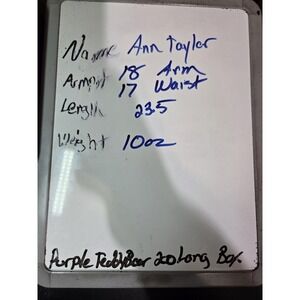 Name Ann Taylor
Armpit 18 Arm
17 Waist
Length 23.5
Weight 10oz
Purple Teddy Bear 200 Long Box